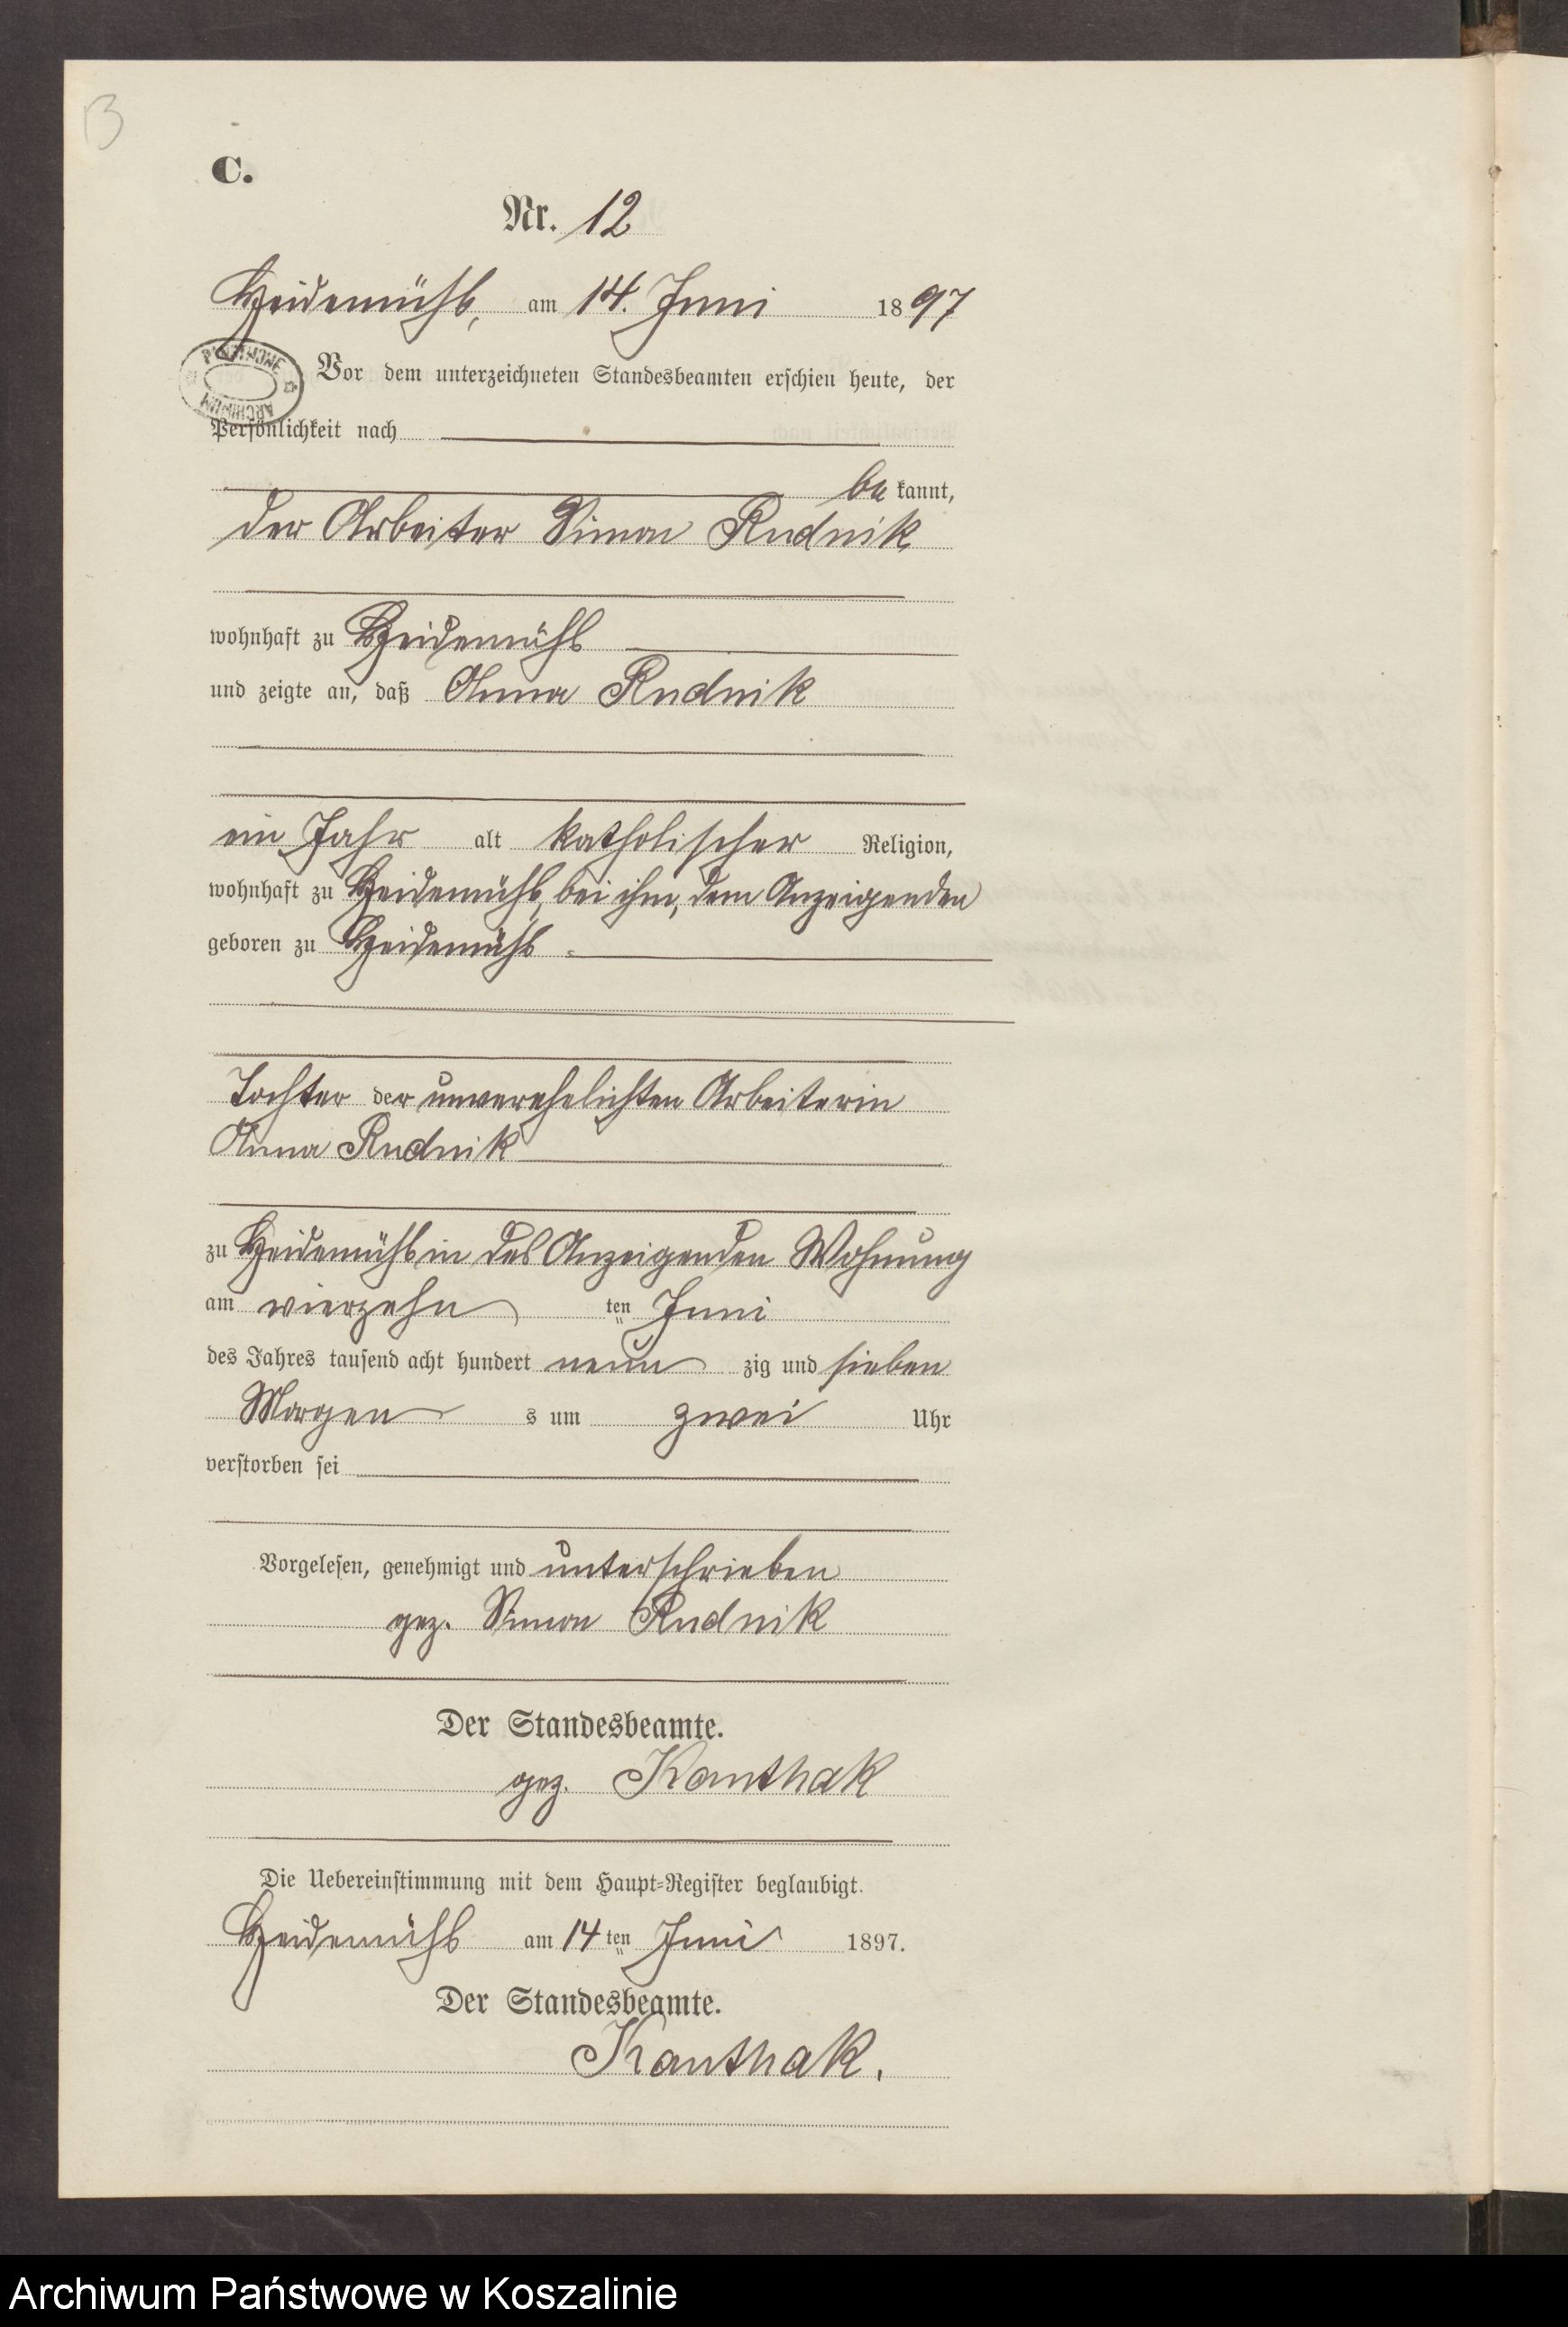 13
C.
Nr. 12
Heidemühl, am 14. Juni 1897
Vor dem unterzeichneten Standesbeamten erschien heute, der
Persönlichkeit nach
be kannt,
der Arbeiter Simon Rudnik
wohnhaft zu Heidemühl
und zeigte an, daß Anna Rudnik
ein Jahr alt katholischer Religion,
wohnhaft zu Heidemühl, bei ihm, dem Anzeigenden
geboren zu Heidemühl
Tochter der unverehelichten Arbeiterin
Anna Rudnik
zu Heidemühl in des Anzeigenden Wohnung
am vierzehn ten Juni
des Jahres tausend acht hundert neun zig und sieben
Morgen s um zwei Uhr
verstorben sei
Vorgelesen, genehmigt und unterschrieben
gez. Simon Rudnik
Der Standesbeamte.
gez. Kanthak
Die Uebereinstimmung mit dem Haupt-Register beglaubigt.
Heidemühl am 14 ten Juni 1897.
Der Standesbeamte.
Kanthak.
ARCHIWUM PAŃSTWOWE
Archiwum Państwowe w Koszalinie